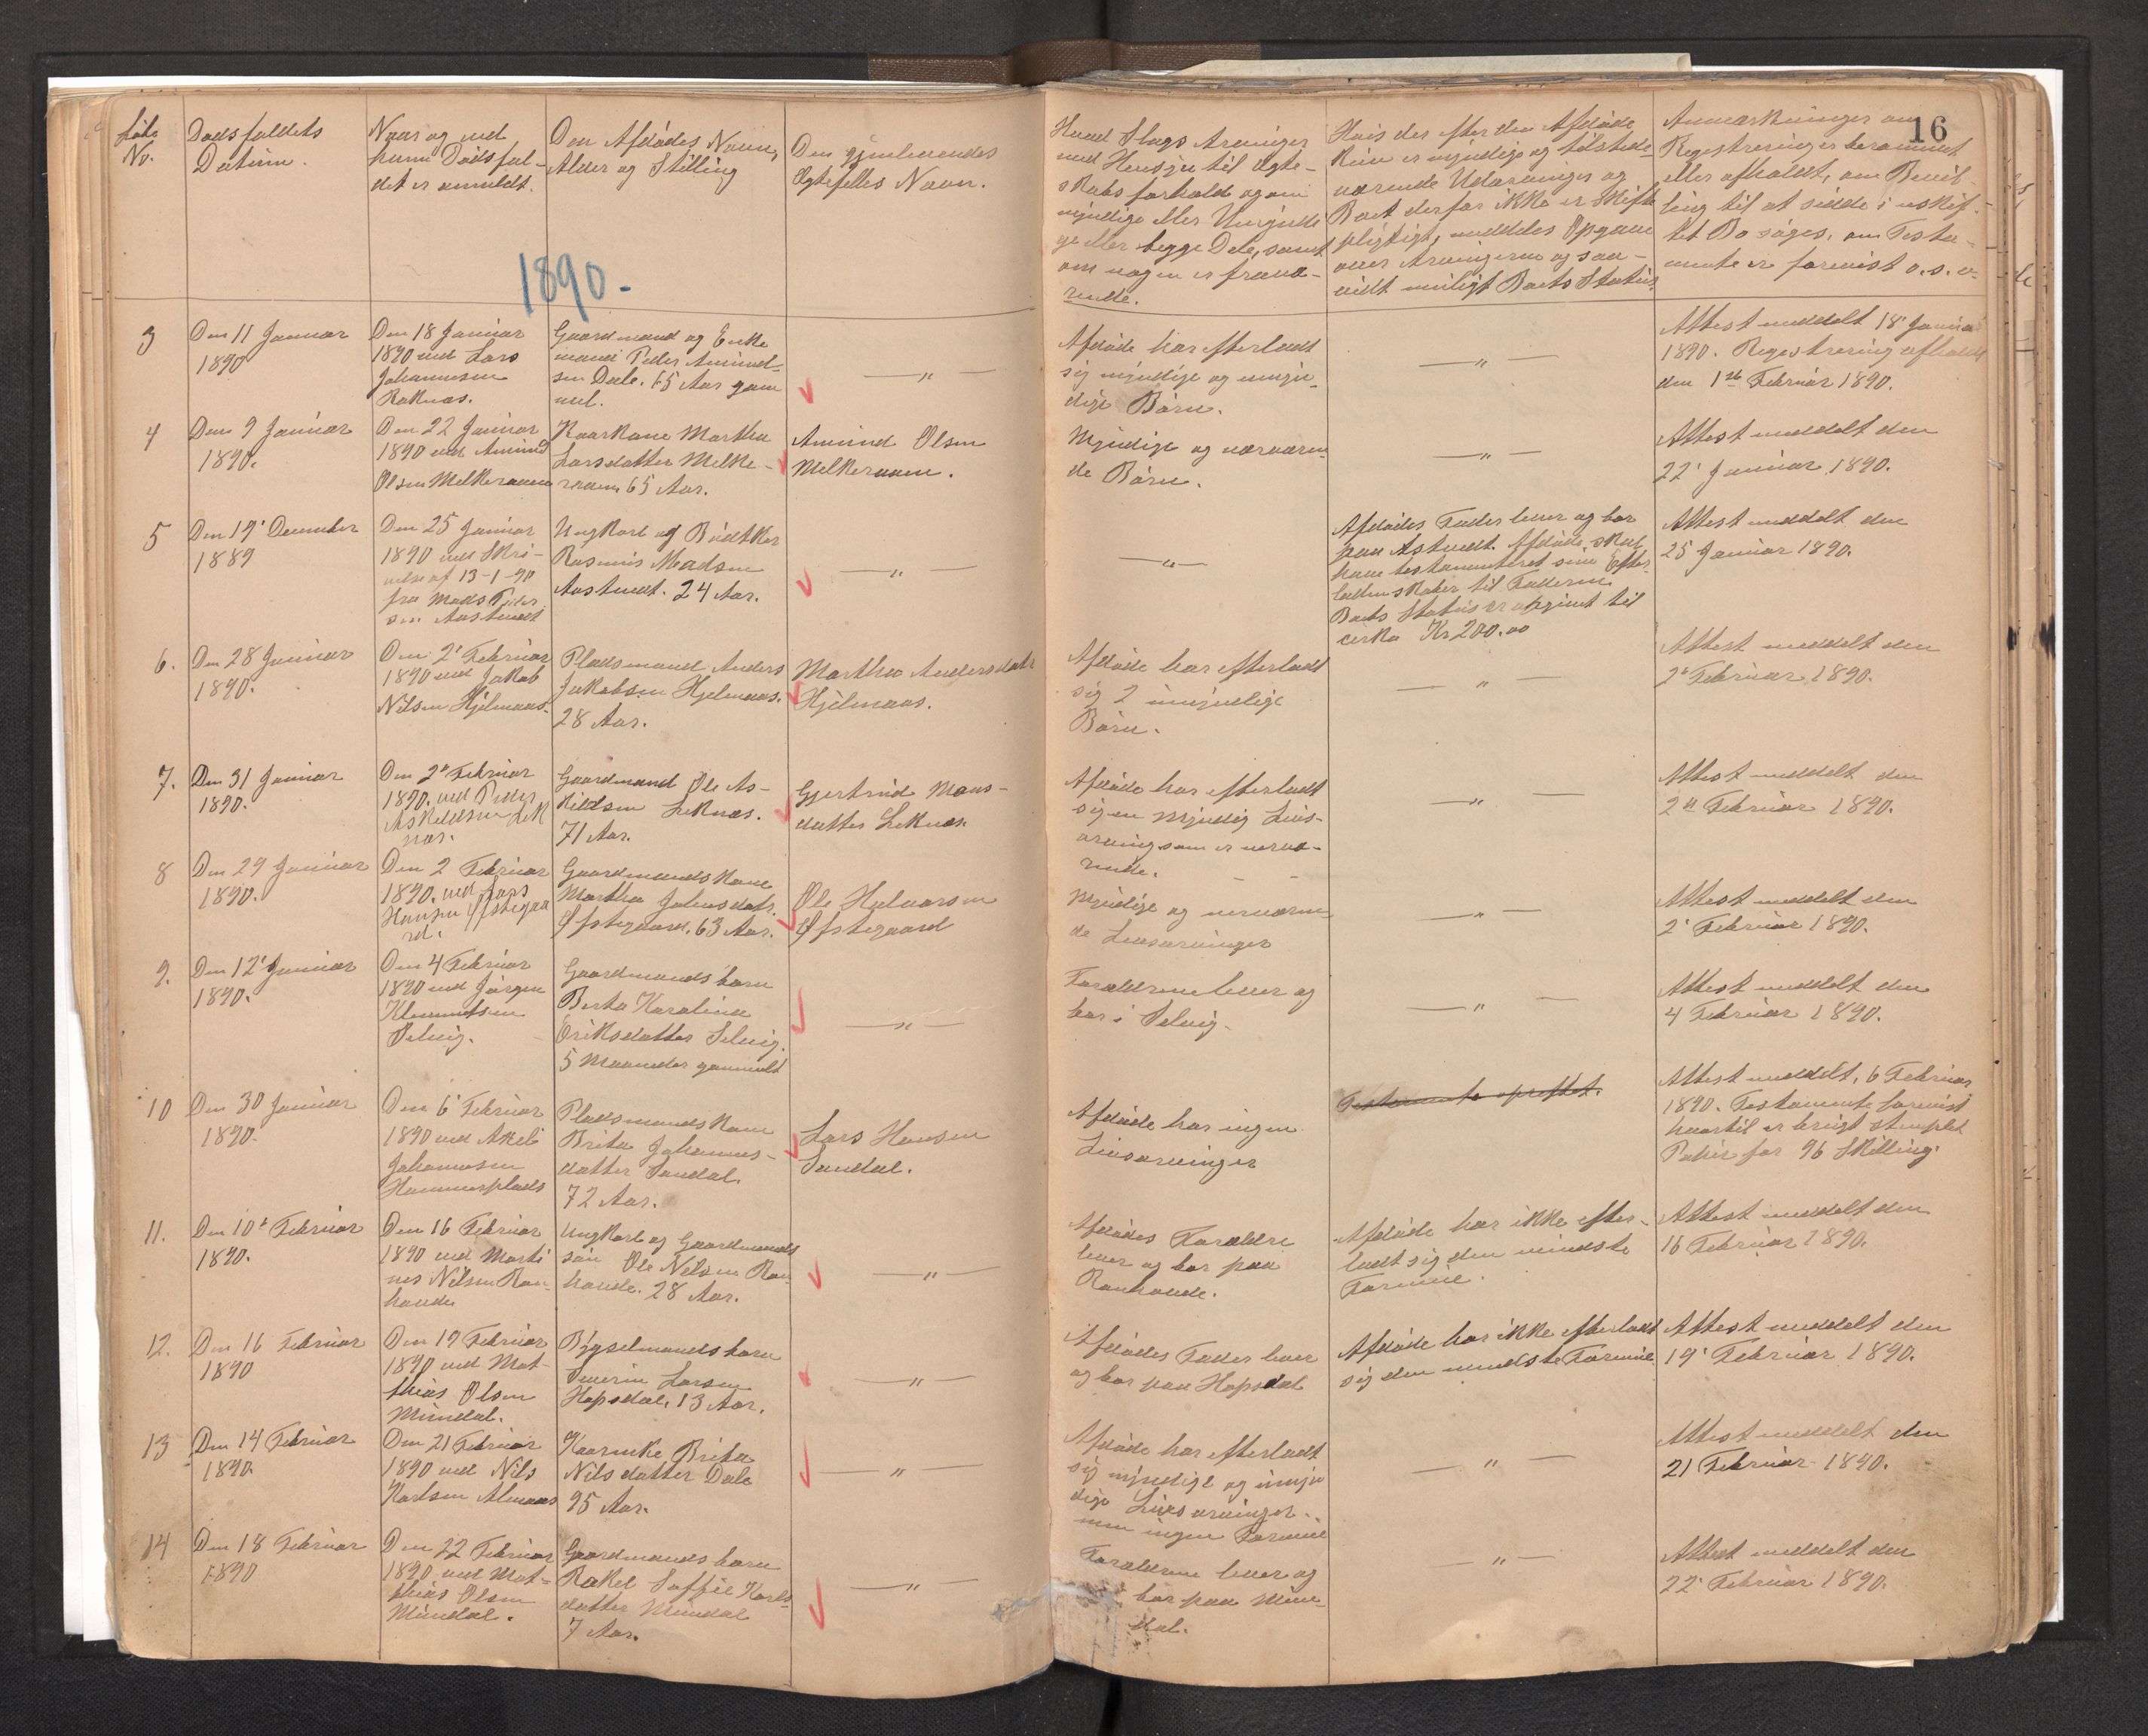 16
Løbe
No.
Dødsfaldets
Datum.
Naar og ved
hvem Dødsfal-
det er anmeldt.
Den Afdødes Navn,
Alder og Stilling
Den gjenlevendes
Ægtefelles Navn.
Hvad Slags Arvinger
med Hensyn til Ægte-
skabsforhold og om
myndige eller Umyndi
ge eller begge Dele, samt
om nogen er fravæ-
rende.
Hvis der efter den Afdøde
kun er myndige og tilstede-
værende Udarvinger og
Boet derfor ikke er skifte
pligtigt, meddeles Opgave
over Arvingerne og saa-
vidt muligt Boets Status.
Anmærkninger om
Registrering er berammet
eller afholdt, om Bevil-
ling til at sidde i uskif-
tet Bo søges, om Testa-
mente er forevist o.s.v.
1890.
3
Den 11 Januar
1890
Den 18 Januar
1890 ved Lars
Johannesen
Raknes.
Gaardmand og Enke
mand Peder Amund-
sen Dale. 65 Aar gam
mel.
— " —
Afdøde har efterladt
sig myndige og umyn-
dige Børn.
— " —
Attest meddelt 18' Januar
1890. Registrering afholdt
den 1ste Februar 1890.
4
Den 9 Januar
1890.
Den 22 Januar
1890 ved Amund
Olsen Melkeraaen
Kaarkone Martha
Larsdatter Melke-
raaen 65 Aar.
Amund Olsen
Melkeraaen.
Myndige og nærværen-
de Børn.
— " —
Attest meddelt den
22' Januar 1890.
5
Den 19' December
1889
Den 25 Januar
1890 ved Skri-
velse af 13-1-90
fra Mads Peder
sen Aastvedt
Ungkarl og Bødtker
Rasmus Madsen
Aastvedt. 24 Aar.
— " —
— " —
Afdødes Fader lever og bor
paa Astvedt. Afdøde skal
have testamenteret sine Efter-
ladenskaber til Faderen
Boets Status er opgivet til
cirka Kr 200.00
Attest meddelt den
25 Januar 1890.
6.
Den 28 Januar
1890.
Den 2' Februar
1890 ved Jakob
Nilsen Hjelmaas.
Pladsmand Anders
Jakobsen Hjelmaas.
28 Aar.
Martha Andersdatr
Hjelmaas.
Afdøde har efterladt
sig 2 umyndige
Børn.
— " —
Attest meddelt den
2' Februar 1890.
7.
Den 31 Januar
1890.
Den 2' Februar
1890. ved Peder
Askeldsen Lek
næs.
Gaardmand Ole As-
kildsen Leknæs.
71 Aar.
Gjertrud Mons-
datter Leknæs.
Afdøde har efterladt
sig en myndig Livs-
arving som er nærvæ-
rende.
— " —
Attest meddelt den
2' Februar 1890.
8
Den 29 Januar
1890.
Den 2 Februar
1890. ved Lars
Hansen Øfstegaa
rd.
Gaardmandskone
Martha Johnsdatr.
Øfstegaard. 63 Aar.
Ole Halvarsen
Øfstegaard
Myndige og nærværen
de Livsarvinger
— " —
Attest meddelt den
2' Februar 1890.
9.
Den 12' Januar
1890.
Den 4 Februar
1890 ved Jørgen
Klemmetsen
Selvig.
Gaardmandsbarn
Berta Karolina
Eriksdatter Selvig.
5 Maaneder gammelt
— " —
Forældrene lever og
bor i Selvig.
— " —
Attest meddelt den
4 Februar 1890.
10
Den 30 Januar
1890.
Den 6' Februar
1890 ved
Johannesen
Hammersplads
Pladsmandskone
Brita Johannes-
datter Sandal.
72 Aar.
Lars Hansen
Sandal.
Afdøde har ingen
Livsarvinger
Testamente oprettet.
Attest meddelt, 6 Februar
1890. Testamente forevist
hvortil er brugt stemplet
Papir for 96 Skilling.
11.
Den 10' Februar
1890.
Den 16 Februar
1890 ved Marti
nus Nilsen Ran-
hovde
Ungkarl og Gaardmands
søn Ole Nilsen Ran
hovde. 28 Aar.
— " —
Afdødes Forældre
lever og bor paa
Ranhovde.
Afdøde har ikke efter-
ladt sig den mindste
Formue.
Attest meddelt den
16 Februar 1890.
12.
Den 16 Februar
1890
Den 19 Februar
1890 ved Mat-
thias Olsen
Mundal.
Bygselmandsbarn
Severin Larsen
Hopsdal. 13 Aar.
— " —
Afdødes Fader lever
og bor paa Hopsdal
Afdøde har ikke efterladt
sig den mindste Formue.
Attest meddelt den
19' Februar 1890.
13
Den 14 Februar
1890.
Den 21 Februar
1890 ved Nils
Karlsen Almaas
Kaarenke Brita
Nilsdatter Dale
95 Aar.
— " —
Afdøde har efterladt
sig myndige og umyn
dige Livsarvinger.
men ingen Formue
— " —
Attest meddelt den
21 Februar 1890.
14
Den 18 Februar
1890
Den 22 Februar
1890 ved Mat-
thias Olsen
Mundal.
Gaardmandsbarn
Rakel Soffie Karls
datter Mundal
7 Aar.
— " —
Forældrene lever og
bor paa Mun-
dal.
— " —
Attest meddelt den
22' Februar 1890.